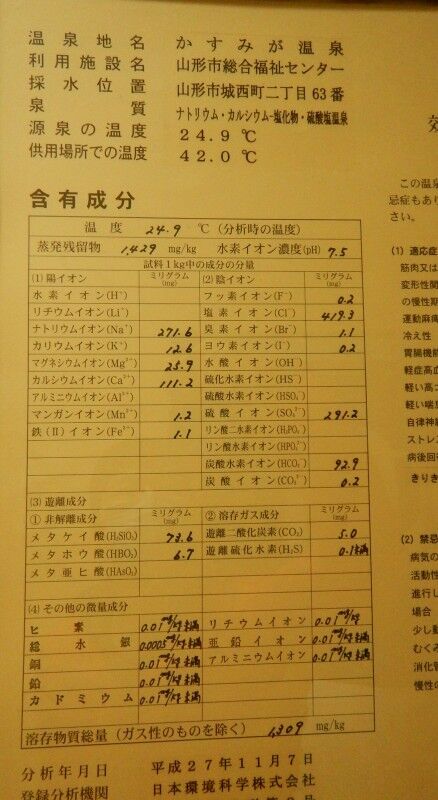 温泉地名 かすみが温泉
利用施設名 山形市総合福祉センター
採水位置 山形市城西町二丁目63番
泉質 ナトリウム・カルシウム-塩化物・硫酸塩温泉
源泉の温度 24.9 ℃
供用場所での温度 42.0 ℃
含有成分
温度 24.9 ℃ (分析時の温度)
蒸発残留物 1,429 mg/kg 水素イオン濃度(pH) 7.5
試料1kg中の成分の分量
(1) 陽イオン ミリグラム(mg) (2) 陰イオン ミリグラム(mg)
水素イオン(H⁺) フッ素イオン(F⁻) 0.2
リチウムイオン(Li⁺) 塩素イオン(Cl⁻) 419.3
ナトリウムイオン(Na⁺) 271.6 臭素イオン(Br⁻) 1.1
カリウムイオン(K⁺) 12.6 ヨウ素イオン(I⁻) 0.2
マグネシウムイオン(Mg²⁺) 25.9 水酸イオン(OH⁻)
カルシウムイオン(Ca²⁺) 111.2 硫化水素イオン(HS⁻)
アルミニウムイオン(Al³⁺) 硫酸水素イオン(HSO₄⁻)
マンガンイオン(Mn²⁺) 1.2 硫酸イオン(SO₄²⁻) 291.2
鉄(Ⅱ)イオン(Fe²⁺) 1.1 リン酸二水素イオン(H₂PO₄⁻)
リン酸水素イオン(HPO₄²⁻)
炭酸水素イオン(HCO₃⁻) 92.9
炭酸イオン(CO₃²⁻) 0.2
(3) 遊離成分
① 非解離成分 ミリグラム(mg) ② 溶存ガス成分 ミリグラム(mg)
メタケイ酸(H₂SiO₃) 73.6 遊離二酸化炭素(CO₂) 5.0
メタホウ酸(HBO₂) 6.7 遊離硫化水素(H₂S) 0.1未満
メタ亜ヒ酸(HAsO₂)
(4) その他の微量成分
ヒ素 0.01mg/kg未満 リチウムイオン 0.01mg/kg
総水銀 0.0005mg/kg未満 亜鉛イオン 0.01mg/kg未満
銅 0.01mg/kg未満 アルミニウムイオン 0.01mg/kg未満
鉛 0.01mg/kg未満
カドミウム 0.01mg/kg未満
溶存物質総量 (ガス性のものを除く) 1,309 mg/kg
分析年月日 平成27年11月7日
登録分析機関 日本環境科学株式会社
この温泉
忌症もあり
さい。
(1) 適応症
筋肉又は
変形性関
の慢性期
運動麻痺
冷え性
胃腸機能
軽症高血
軽い高コ
軽い喘息
自律神経
ストレス
病後回復
きりき
(2) 禁忌
病気の
活動性
進行し
場合
少し動
むくみ
消化管
慢性の